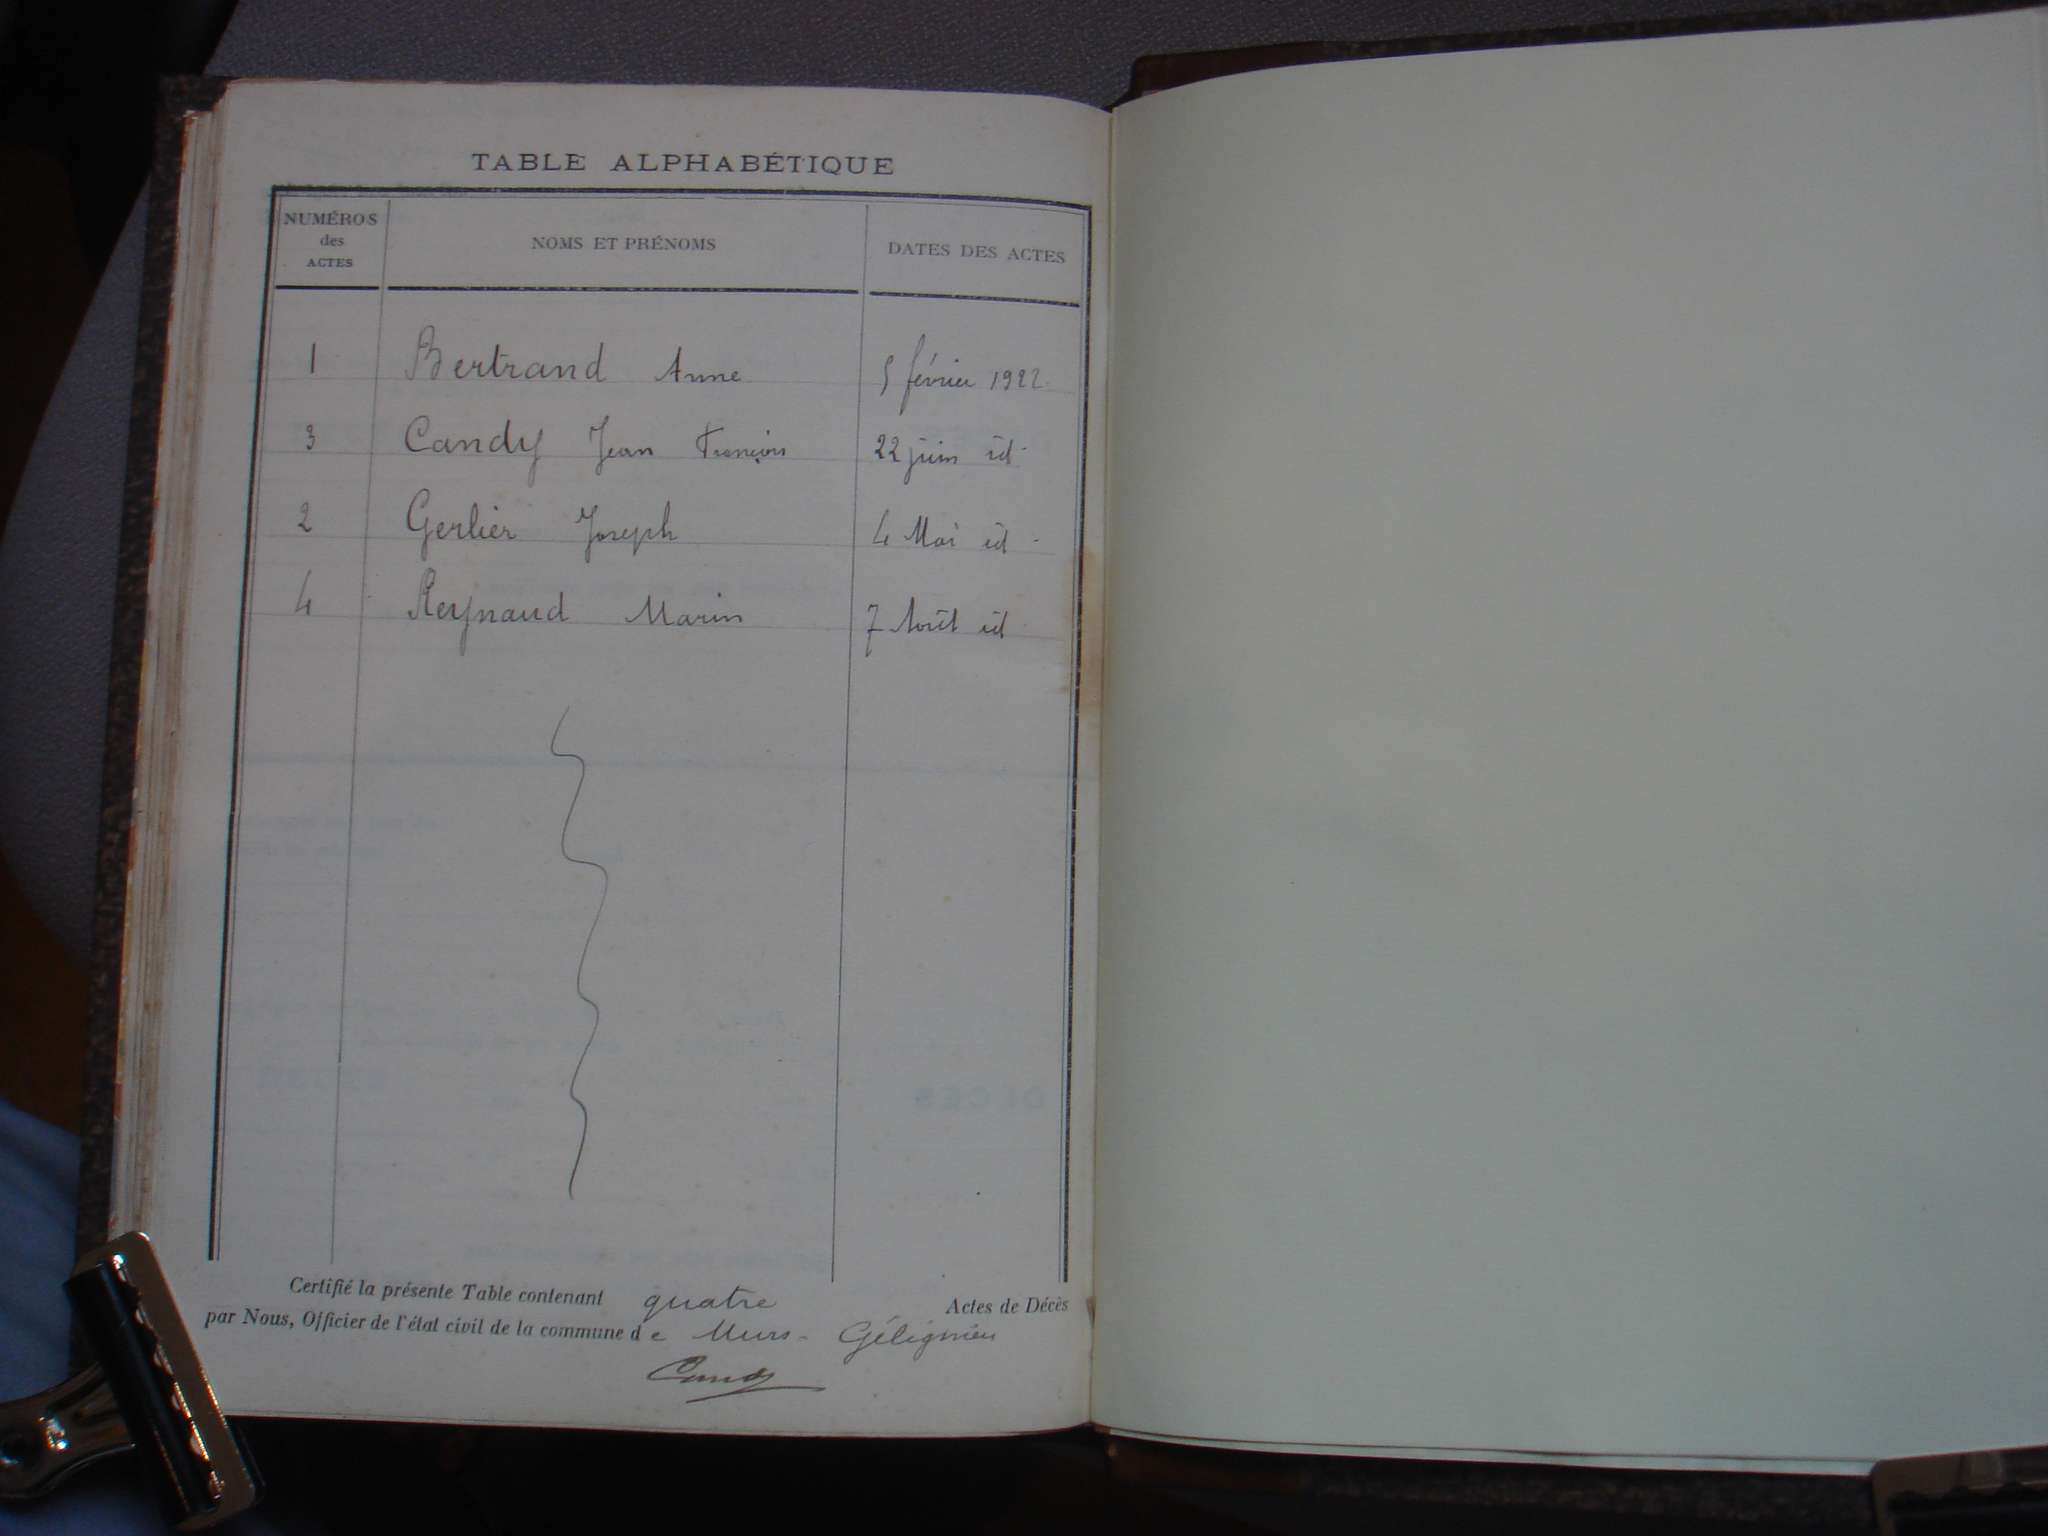 TABLE ALPHABÉTIQUE
NUMÉROS des ACTES
NOMS ET PRÉNOMS
DATES DES ACTES
1 Bertrand Anne 5 février 1922
3 Candy Jean François 22 juin id
2 Gerlier Joseph 4 Mai id
4 Reynaud Marin 7 Août id
Certifié la présente Table contenant quatre Actes de Décès
par Nous, Officier de l'état civil de la commune de Murs-Gélignieu
Candy